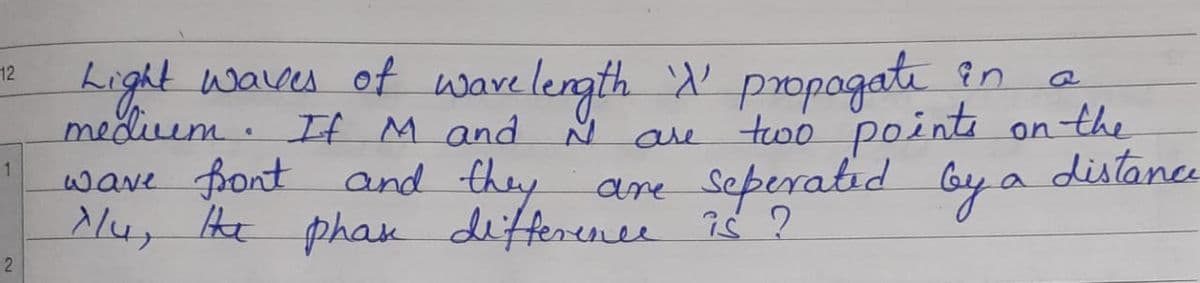 12 Light waves of wavelength 'λ' propagate in a
medium. If M and N are two points on the
1 wave front and they are seperated by a distance
λ/4, the phase difference is ?
2